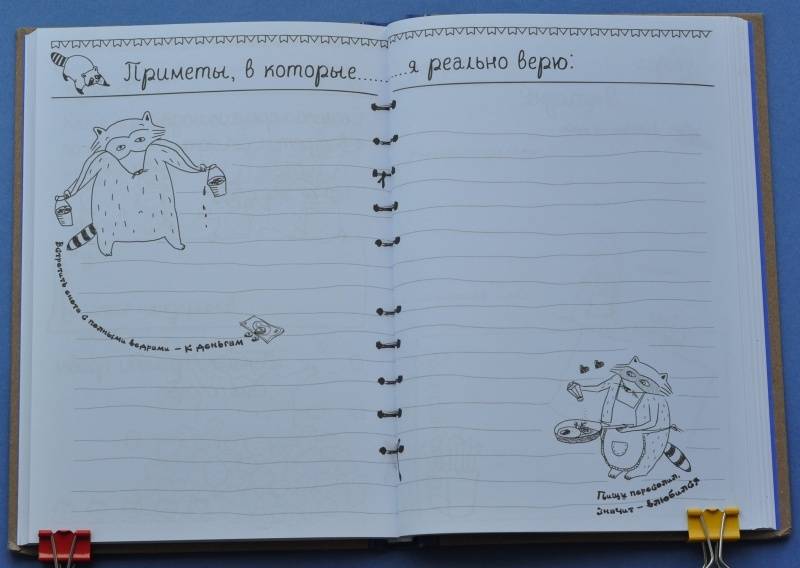 Приметы, в которые.........я реально верю:
Встретить енота с полными ведрами – к деньгам
Пищу пересолил,
значит – влюбился